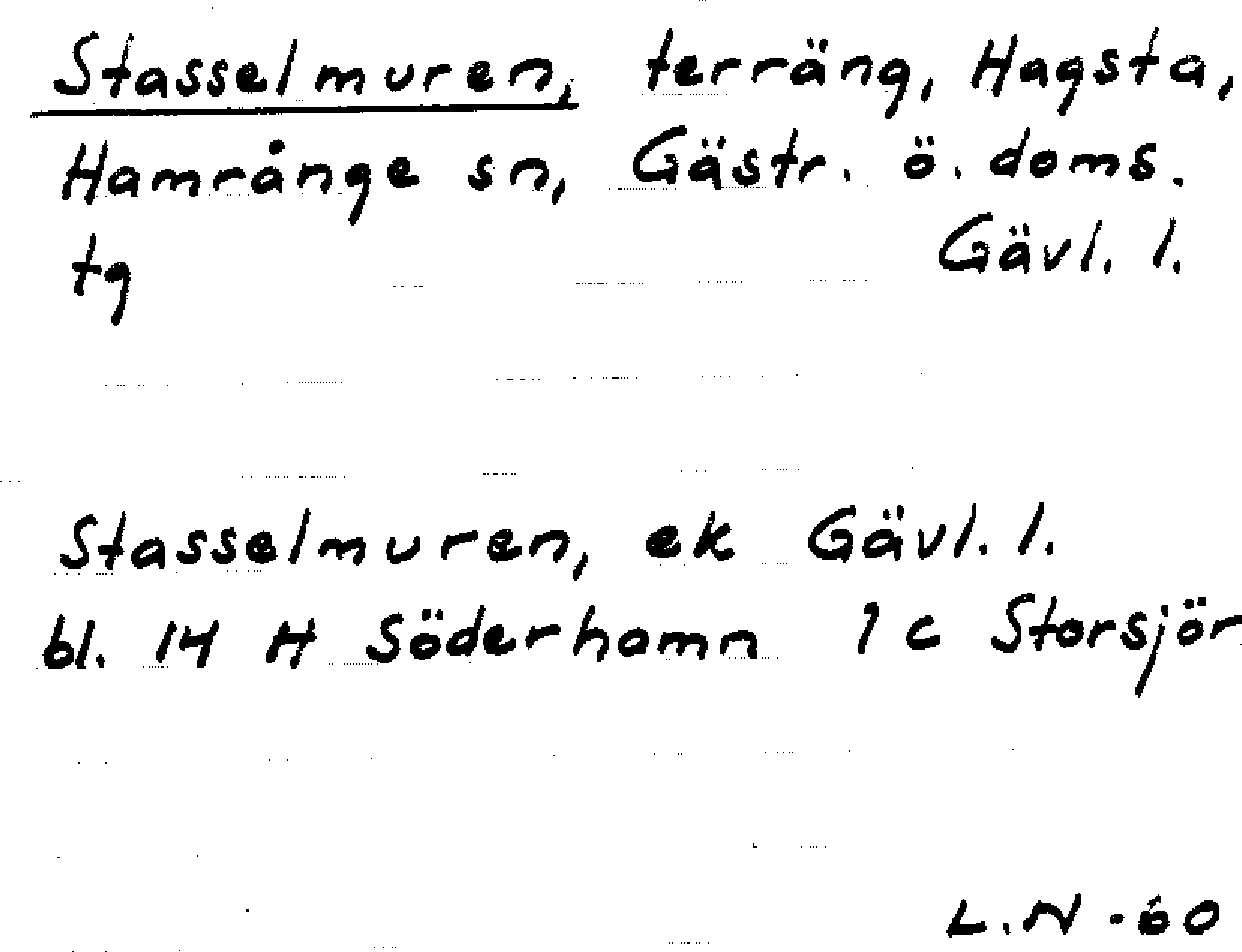 Stasselmuren, terräng, Hagsta,
Hamrånge sn, Gästr. ö. doms.
tg Gävl. l.
Stasselmuren, ek Gävl. l.
bl. 14 H Söderhamn 1 c Storsjör
L.N -60